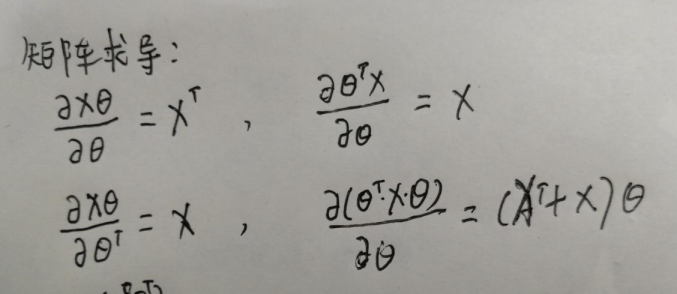 矩阵求导:
∂Xθ/∂θ = X^T , ∂θ^T X/∂θ = X
∂Xθ/∂θ^T = X , ∂(θ^T·X·θ)/∂θ = (X^T+X)θ